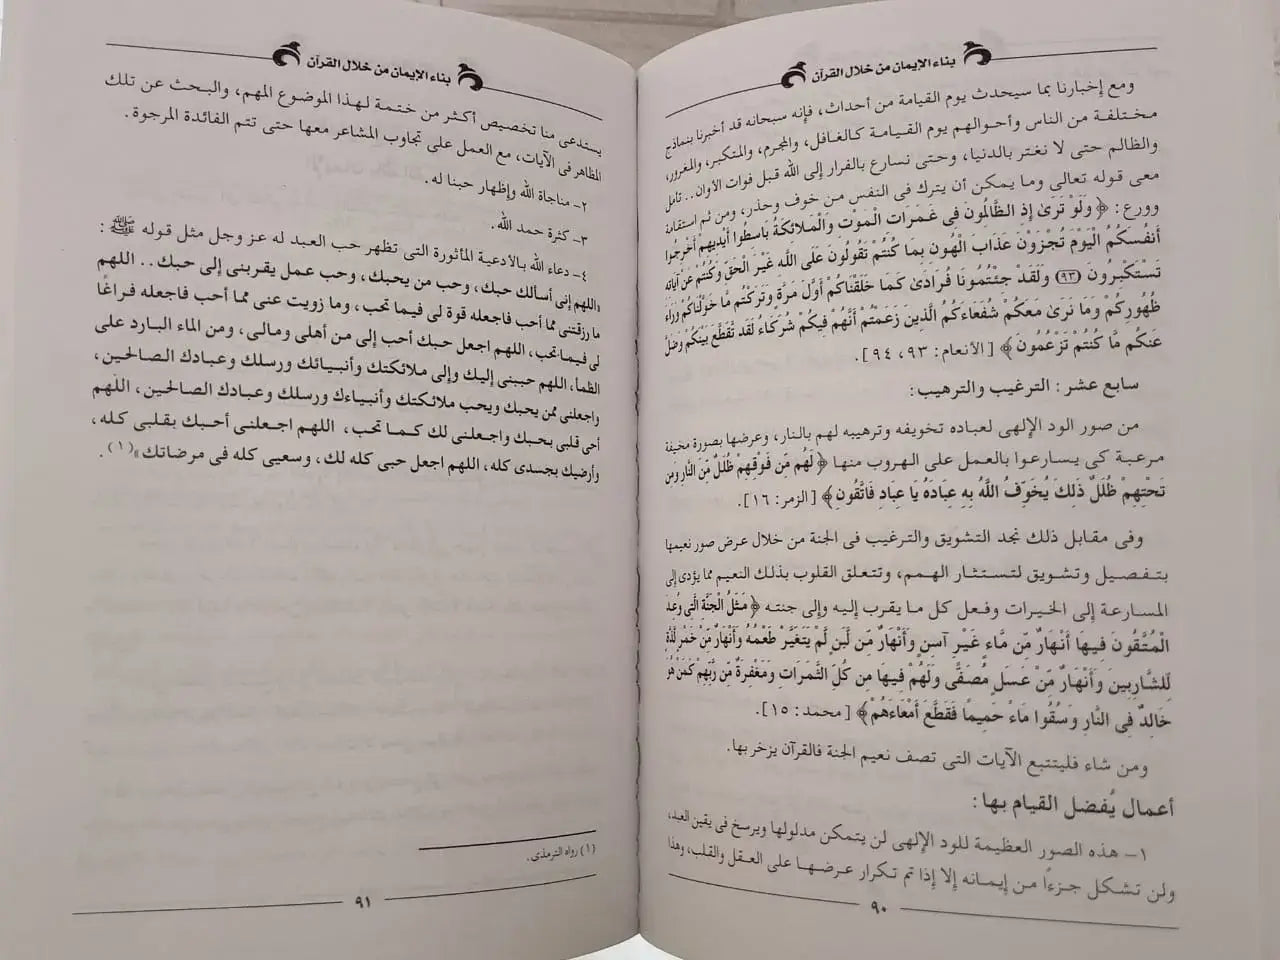 بناء الإيمان من خلال القرآن
ومع إخبارنا بما سيحدث يوم القيامة من أحداث، فإنه سبحانه قد أخبرنا بنماذج
مختلفة من الناس وأحوالهم يوم القيامة كالغافل، والمجرم، والمتكبر، والمغرور،
والظالم حتى لا نغتر بالدنيا، وحتى نسارع بالفرار إلى الله قبل فوات الأوان.. تأمل
معى قوله تعالى وما يمكن أن يترك فى النفس من خوف وحذر، ومن ثم استقامة
وورع: ﴿ وَلَوْ تَرَىٰ إِذِ الظَّالِمُونَ فِى غَمَرَاتِ الْمَوْتِ وَالْمَلائكَةُ بَاسِطُوا أَيْدِيهِمْ أَخْرِجُوا
أَنفُسَكُمُ الْيَوْمَ تُجْزَوْنَ عَذَابَ الْهُونِ بِمَا كُنتُمْ تَقُولُونَ عَلَى اللَّه غَيْرَ الْحَقِّ وَكُنتُمْ عَنْ آيَاتِه
تَسْتَكْبِرُونَ (٩٣) وَلَقَدْ جِئْتُمُونَا فُرَادَىٰ كَمَا خَلَقْنَاكُمْ أَوَّلَ مَرَّةٍ وَتَرَكْتُم مَّا خَوَّلْنَاكُمْ وَرَاءَ
ظُهُورِكُمْ وَمَا نَرَىٰ مَعَكُمْ شُفَعَاءَكُمُ الَّذِينَ زَعَمْتُمْ أَنَّهُمْ فِيكُمْ شُرَكَاءُ لَقَد تَّقَطَّعَ بَيْنَكُمْ وَضَلَّ
عَنكُم مَّا كُنتُمْ تَزْعُمُونَ﴾ [الأنعام: ٩٣، ٩٤].
سابع عشر: الترغيب والترهيب:
من صور الود الإلهى لعباده تخويفه وترهيبه لهم بالنار، وعرضها بصورة مخيفة
مرعبة كى يسارعوا بالعمل على الهروب منها ﴿ لَهُم مِّن فَوْقِهِمْ ظُلَلٌ مِّنَ النَّارِ وَمِن
تَحْتِهِمْ ظُلَلٌ ذَلِكَ يُخَوِّفُ اللَّهُ بِهِ عِبَادَهُ يَا عِبَادِ فَاتَّقُونِ﴾ [الزمر: ١٦].
وفى مقابل ذلك نجد التشويق والترغيب فى الجنة من خلال عرض صور نعيمها
بتفصيل وتشويق لتستثار الهمم، وتتعلق القلوب بذلك النعيم مما يؤدى إلى
المسارعة إلى الخيرات وفعل كل ما يقرب إليه وإلى جنته ﴿ مَثَلُ الْجَنَّةِ الَّتِى وُعِدَ
الْمُتَّقُونَ فِيهَا أَنْهَارٌ مِّن مَّاءٍ غَيْرِ آسِنٍ وَأَنْهَارٌ مِّن لَّبَنٍ لَّمْ يَتَغَيَّرْ طَعْمُهُ وَأَنْهَارٌ مِّنْ خَمْرٍ لَّذَّةٍ
لِّلشَّارِبِينَ وَأَنْهَارٌ مِّنْ عَسَلٍ مُّصَفًّى وَلَهُمْ فِيهَا مِن كُلِّ الثَّمَرَاتِ وَمَغْفِرَةٌ مِّن رَّبِّهِمْ كَمَنْ هُوَ
خَالِدٌ فِى النَّارِ وَسُقُوا مَاءً حَمِيمًا فَقَطَّعَ أَمْعَاءَهُمْ﴾ [محمد: ١٥].
ومن شاء فليتتبع الآيات التى تصف نعيم الجنة فالقرآن يزخر بها.
أعمال يُفضل القيام بها:
١- هذه الصور العظيمة للود الإلهى لن يتمكن مدلولها ويرسخ فى يقين العبد،
ولن تشكل جزءًا من إيمانه إلا إذا تم تكرار عرضها على العقل والقلب، وهذا
٩٠
بناء الإيمان من خلال القرآن
يستدعى منا تخصيص أكثر من ختمة لهذا الموضوع المهم، والبحث عن تلك
المظاهر فى الآيات، مع العمل على تجاوب المشاعر معها حتى تتم الفائدة المرجوة.
٢- مناجاة الله وإظهار حبنا له.
٣- كثرة حمد الله.
٤- دعاء الله بالأدعية المأثورة التى تظهر حب العبد له عز وجل مثل قوله ﷺ:
«اللهم إنى أسألك حبك، وحب من يحبك، وحب عمل يقربنى إلى حبك.. اللهم
ما رزقتنى مما أحب فاجعله قوة لى فيما تحب، وما زويت عنى مما أحب فاجعله فراغًا
لى فيما تحب، اللهم اجعل حبك أحب إلى من أهلى ومالى، ومن الماء البارد على
الظمأ، اللهم حببنى إليك وإلى ملائكتك وأنبيائك ورسلك وعبادك الصالحين،
واجعلنى ممن يحبك ويحب ملائكتك وأنبياءك ورسلك وعبادك الصالحين، اللهم
أحى قلبى بحبك واجعلنى لك كما تحب، اللهم اجعلنى أحبك بقلبى كله،
وأرضيك بجسدى كله، اللهم اجعل حبى كله لك، وسعيى كله فى مرضاتك»(١).
(١) رواه الترمذى.
٩١